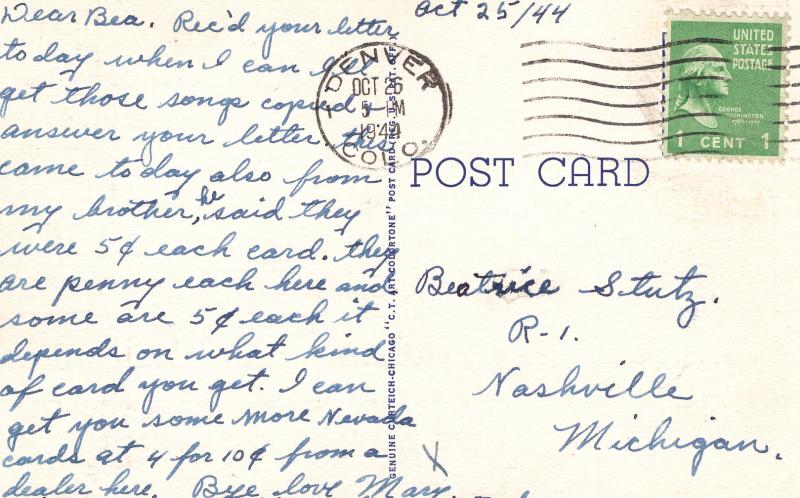 Dear Bea. Rec'd your letter
today when I can I'll
get those songs copied
answer your letter. this
came today also from
my brother, he said they
were 5¢ each card. they
are penny each here and
some are 5¢ each it
depends on what kind
of card you get. I can
get you some more Nevada
cards at 4 for 10¢ from a
dealer here. Bye love Mary.
Oct 25/44
DENVER
OCT 26
5-M
1944
COLO.
UNITED
STATES
POSTAGE
GEORGE
WASHINGTON
1789-1797
1 CENT 1
POST CARD
GENUINE CURTEICH-CHICAGO "C.T. ART-COLORTONE" POST CARD (REG. U.S. PAT. OFF.)
Beatrice Stutz.
R-1.
Nashville
Michigan.
X